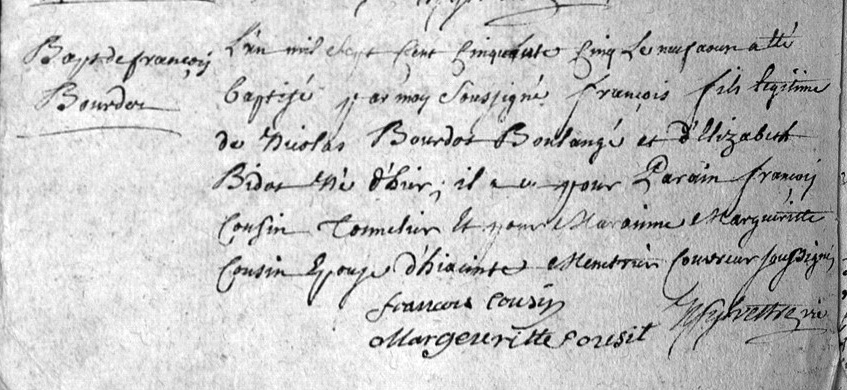 Bapt de françois
Bourdot
L'an mil sept cent cinquante cinq le neuf aoust a été
baptisé par moy soussigné françois fils legitime
de Nicolas Bourdot Boulangé et d'Elizabeth
Bidot né d'hier, il a eu pour Parain françois
Cousin Tonnelier et pour Maraine Marguéritte
Cousin Epouse d'hiacinte Menetrier Couvreur soussigné
françois cousin
Margeueritte cousit
Sylvestre vic